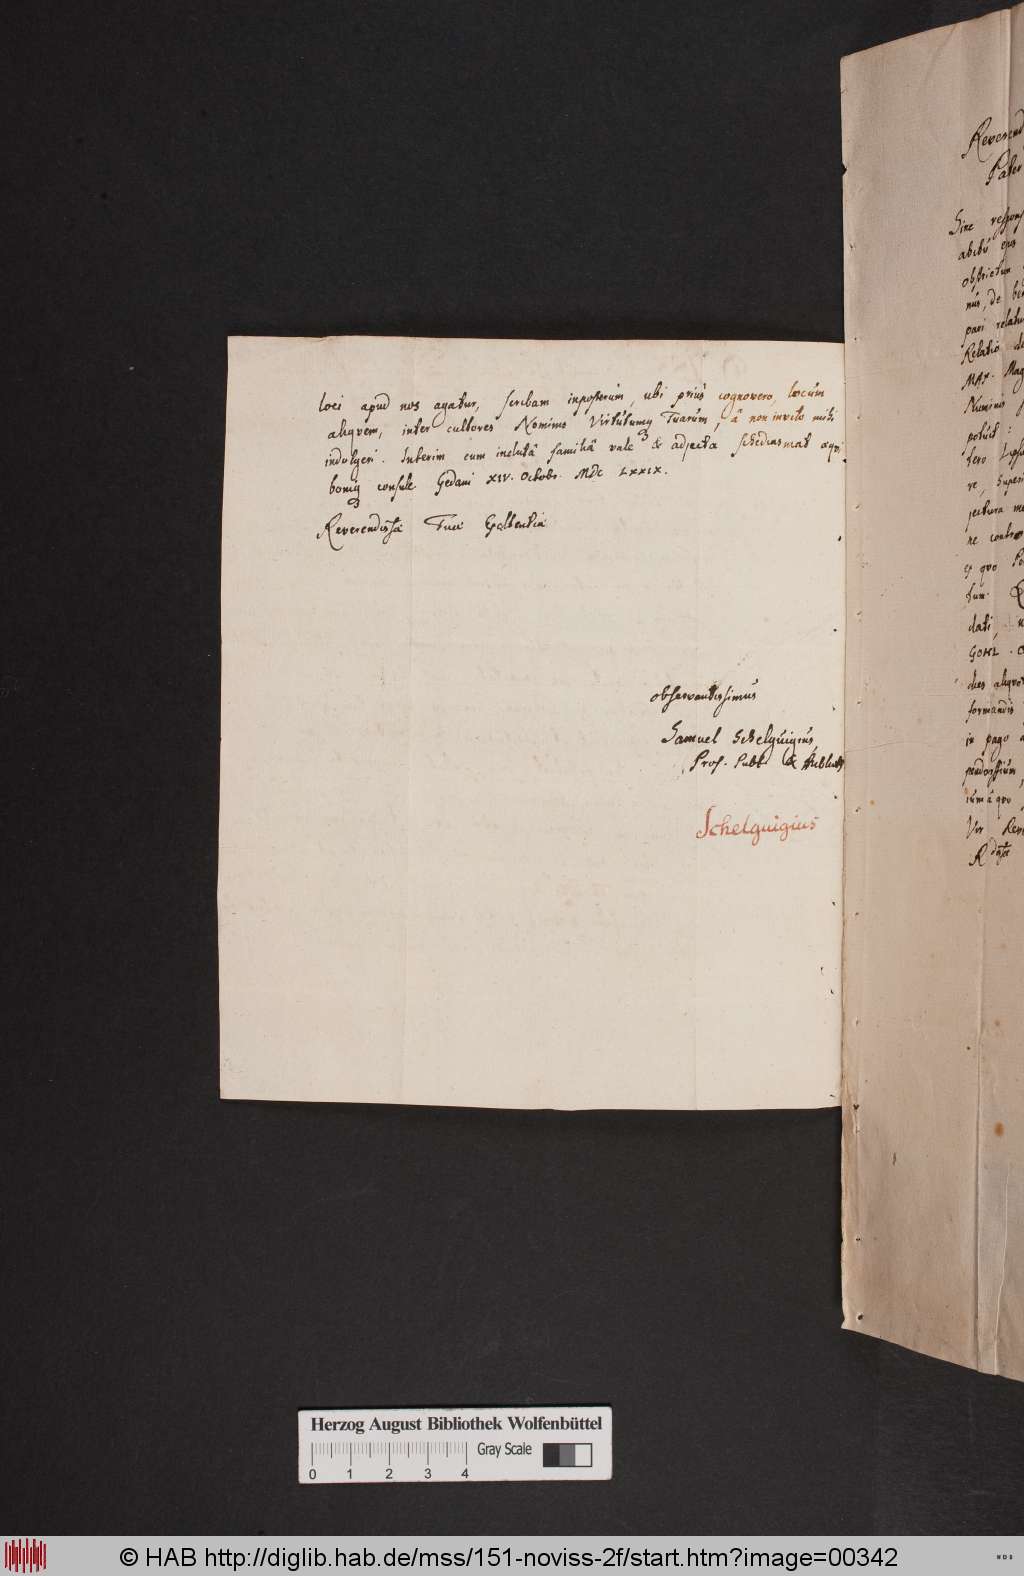 loci apud nos agatur, scribam inposterum, ubi prius cognovero, locum
aliqvem, inter cultores Nominis Virtutumq Tuarum, â non invito mihi
indulgeri. Interim cum inclutâ familiâ vale & adjecta schediasmat
boniq consule Gedani XIV. Octobr. MDC LXXIX.
Reverendissæ Tuæ
observantissimus
Samuel Schelguigius,
Prof. Publ. &
Schelguigius
Reverend
Pater
Sine
obstrictum
nus, de
pari relatu
Relatio de
MAX. Mag
Numinis
potuit:
re, superi
jectura me
ne contra
& qvo
dati,
dies aliqvo
formandis
in pago
Vir Rev
Herzog August Bibliothek Wolfenbüttel
Gray Scale
0 1 2 3 4
© HAB http://diglib.hab.de/mss/151-noviss-2f/start.htm?image=00342